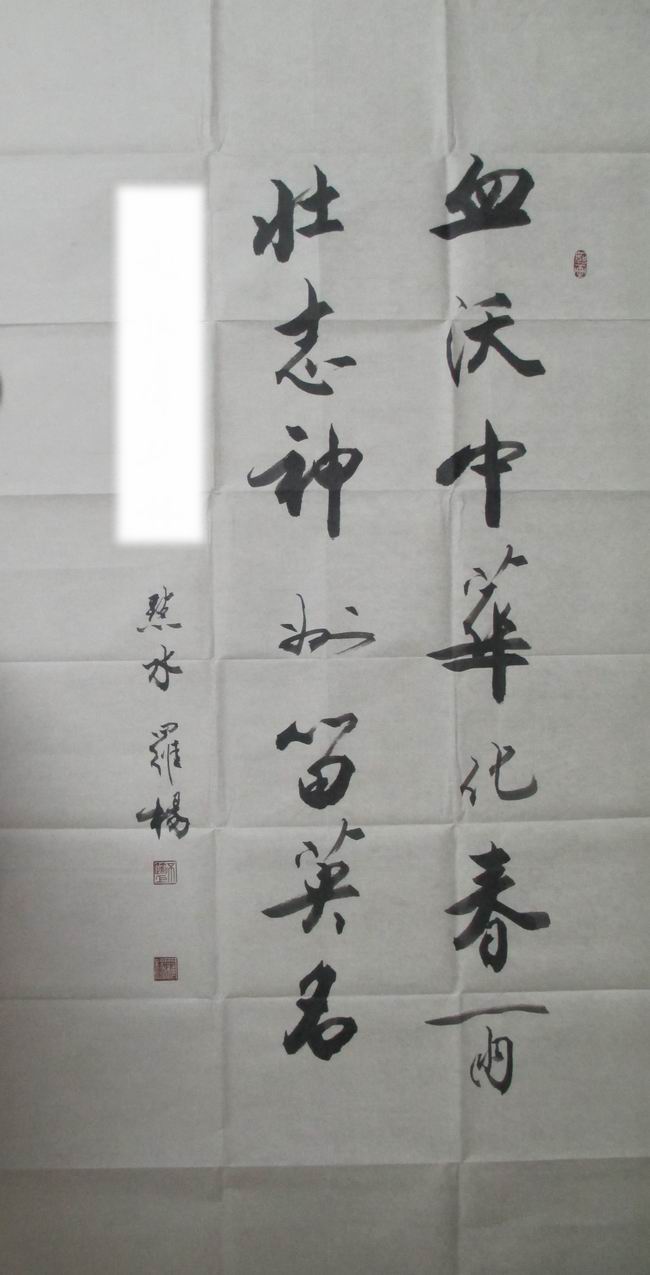 血沃中華化春雨
壮志神州留英名
黙水 羅楊